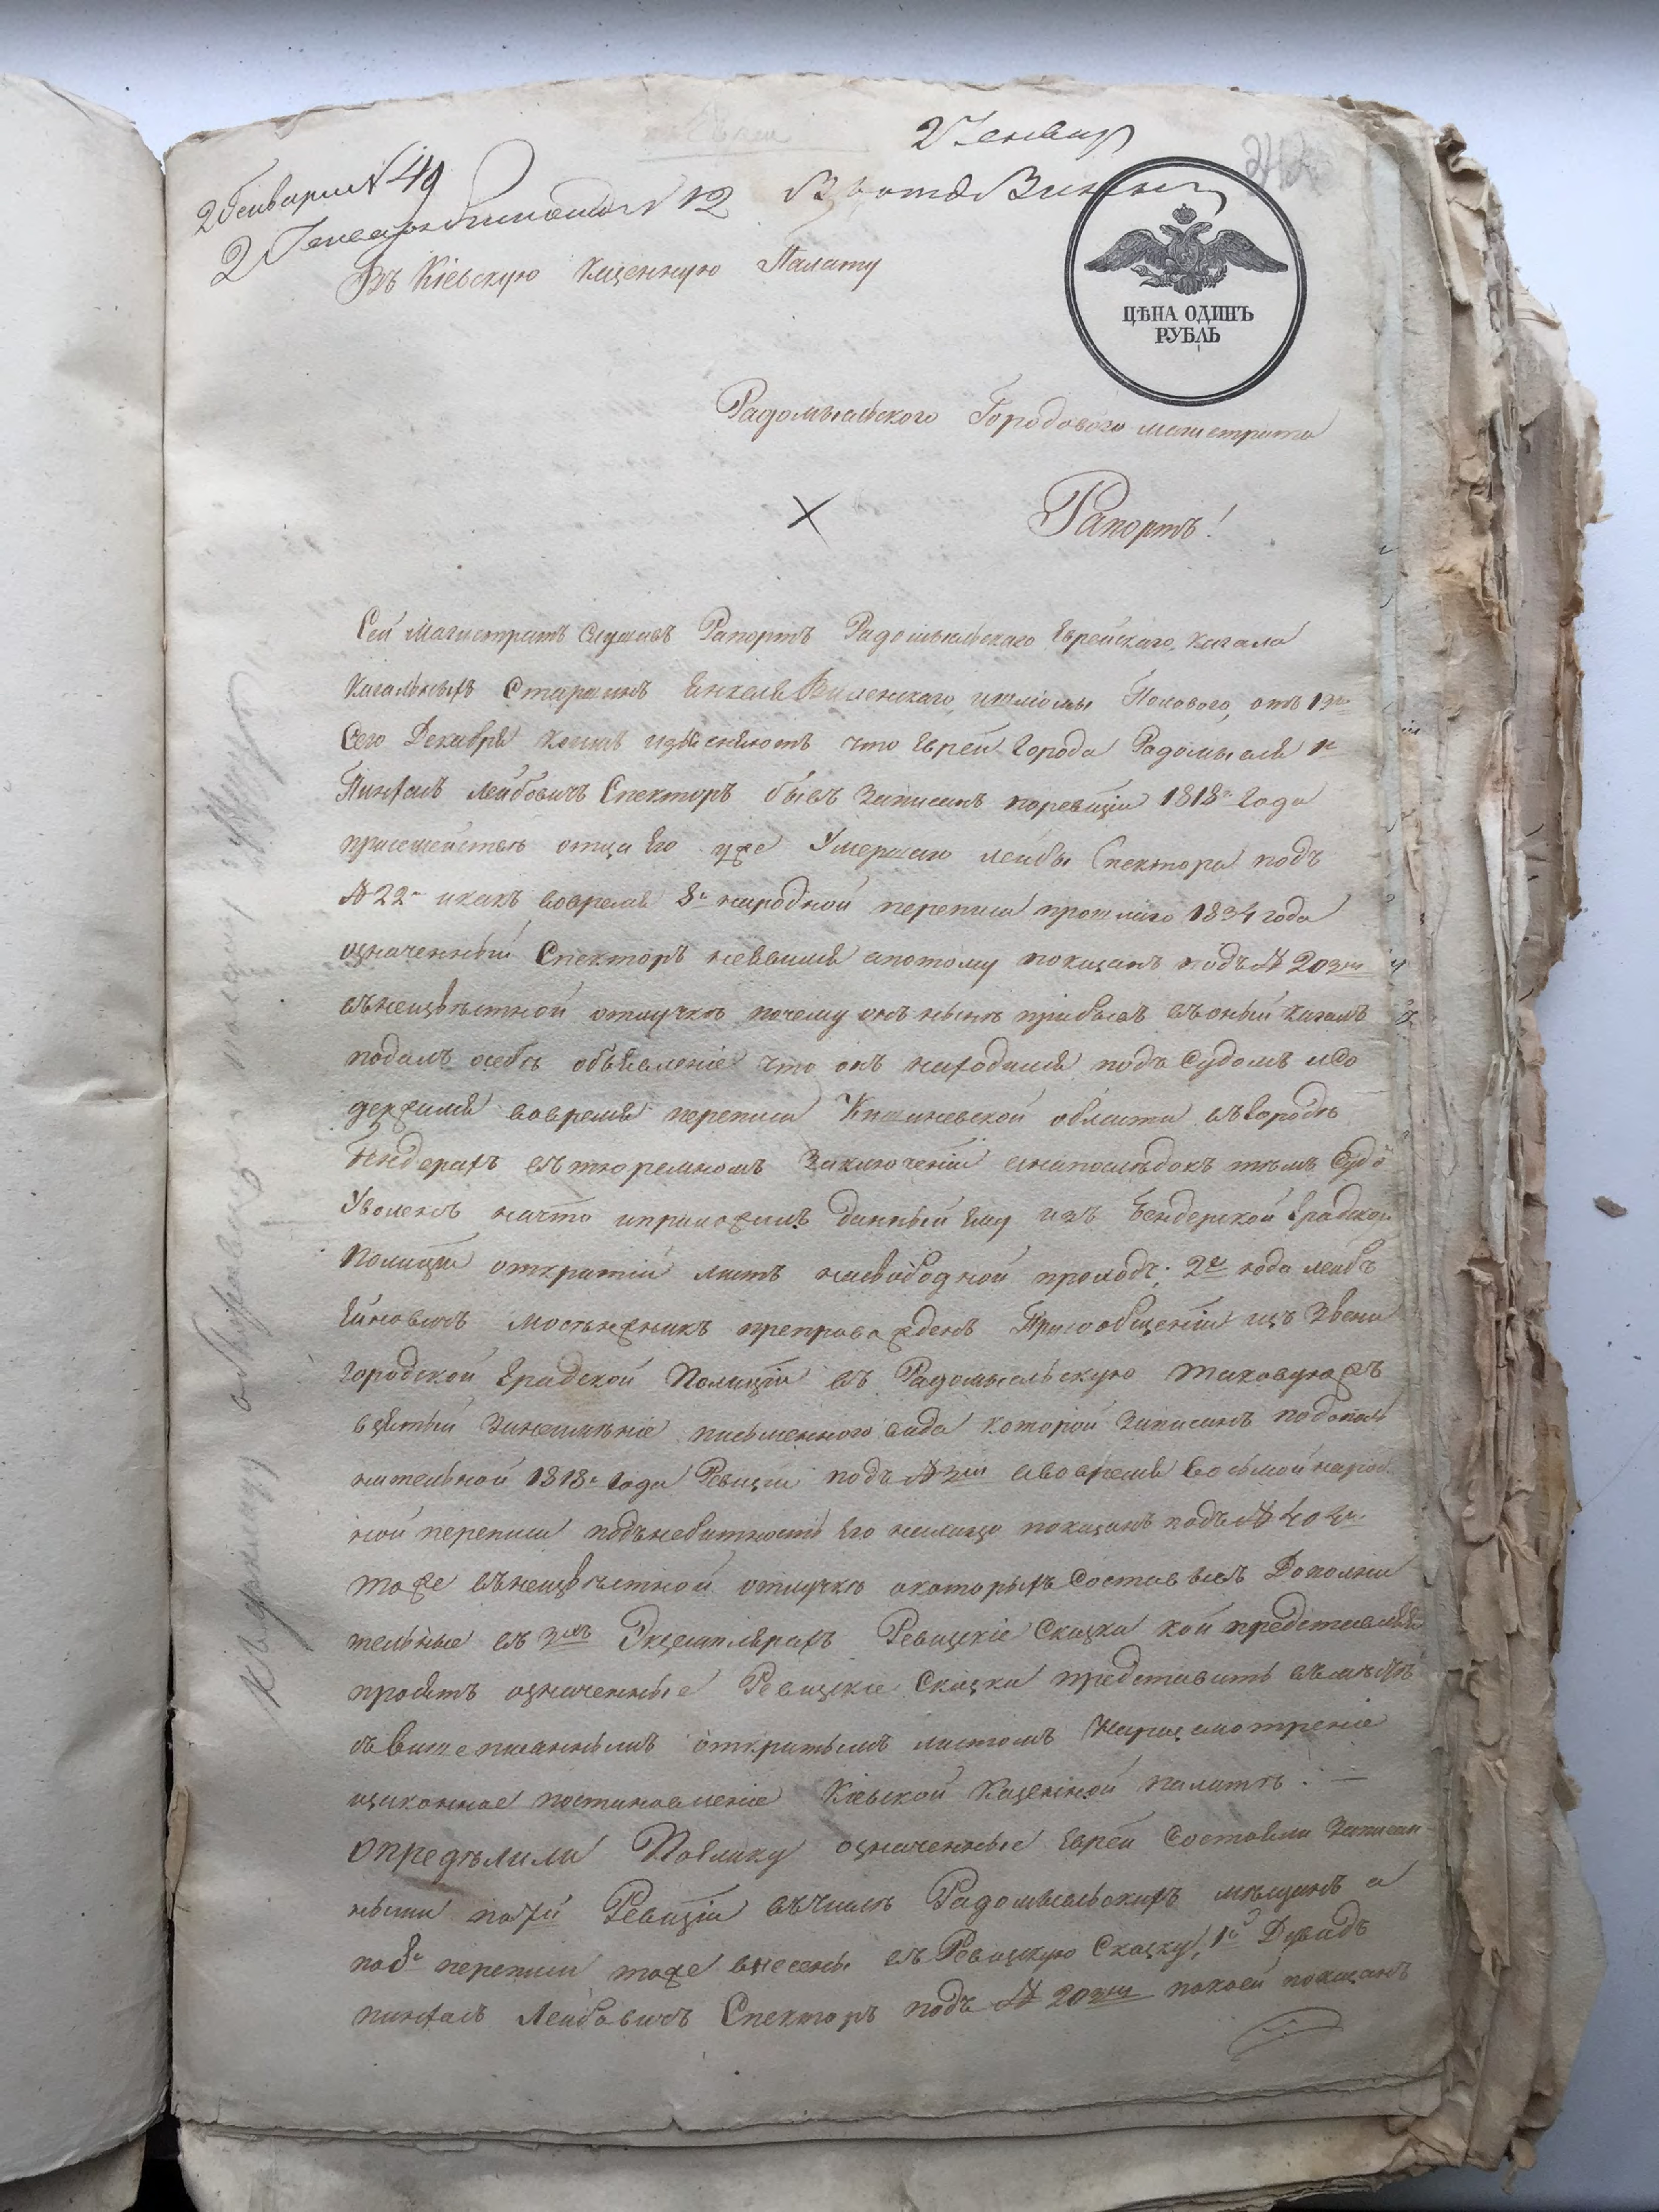 2 Генваря № 49
2 Генваря
№ 12
Въ Кіевскую Казенную Палату
ЦѢНА ОДИНЪ
РУБЛЬ
Радомысльского Городового магистрата
Рапортъ!
Сей Магистратъ Слушавъ Рапортъ Радомысльскаго Еврейскаго Кагала
Кагальныхъ Старшинъ Янкеля Виленскаго, от 19го
Сего Декабря коимъ изъясняютъ что Евреи Города Радомысля 1й
Пинхасъ Лейбовичъ Спекторъ былъ Записанъ поревизіи 1818го Года
присемействе отца Его уже Умершаго Лейбы Спектора подъ
№ 22м икакъ вовремя 8й народной переписи прошлаго 1834 года
означенный Спекторъ неявился апотому показанъ подъ № 203мъ
въ неизвѣстной отлучкѣ почему онъ нынѣ прибылъ въ оный кагалъ
подалъ осебѣ объявленіе что онъ находился подъ Судомъ исо
держался вовремя переписи Кишиневской области въ городѣ
Бендерахъ въ тюремномъ Заключеніи анапослѣдокъ тѣмъ Судо
Уволенъ начто иприложилъ данный Ему изъ Бендерской Градской
Полиціи открытій листъ насвободной проходъ; 2й Лейбъ
препровожденъ Присообщеніи изъ Звени
городской Градской Полиціи въ Радомысльскую таковуюжъ
взятый Занеимѣніе письменного вида которой Записанъ подопол
нительной 1818го Года Ревизіи подъ № авовремя восьмой народ
ной переписи Его показанъ подъ № 404м
тоже въ неизвѣстной отлучкѣ окоторыхъ Составивъ Дополни
тельные въ 3хъ Экземплярахъ Ревизскіе Сказки кои представляя
просятъ означенные Ревизскіе Сказки представить вместѣ
съ вышеписаннымъ открытымъ листомъ Наразсмотреніе
изаконное постановленіе Кіевской Казенной палатѣ. —
Опредѣлили Поелику означенные Евреи Состояли Записан
ными по 7й Ревизіи въ числѣ Радомысльскихъ мѣщанъ а
по 8й переписи тоже внесены въ Ревизскую Сказку, 1й Дувидъ
пинхасъ Лейбовичъ Спекторъ подъ № 203мъ покоей показанъ